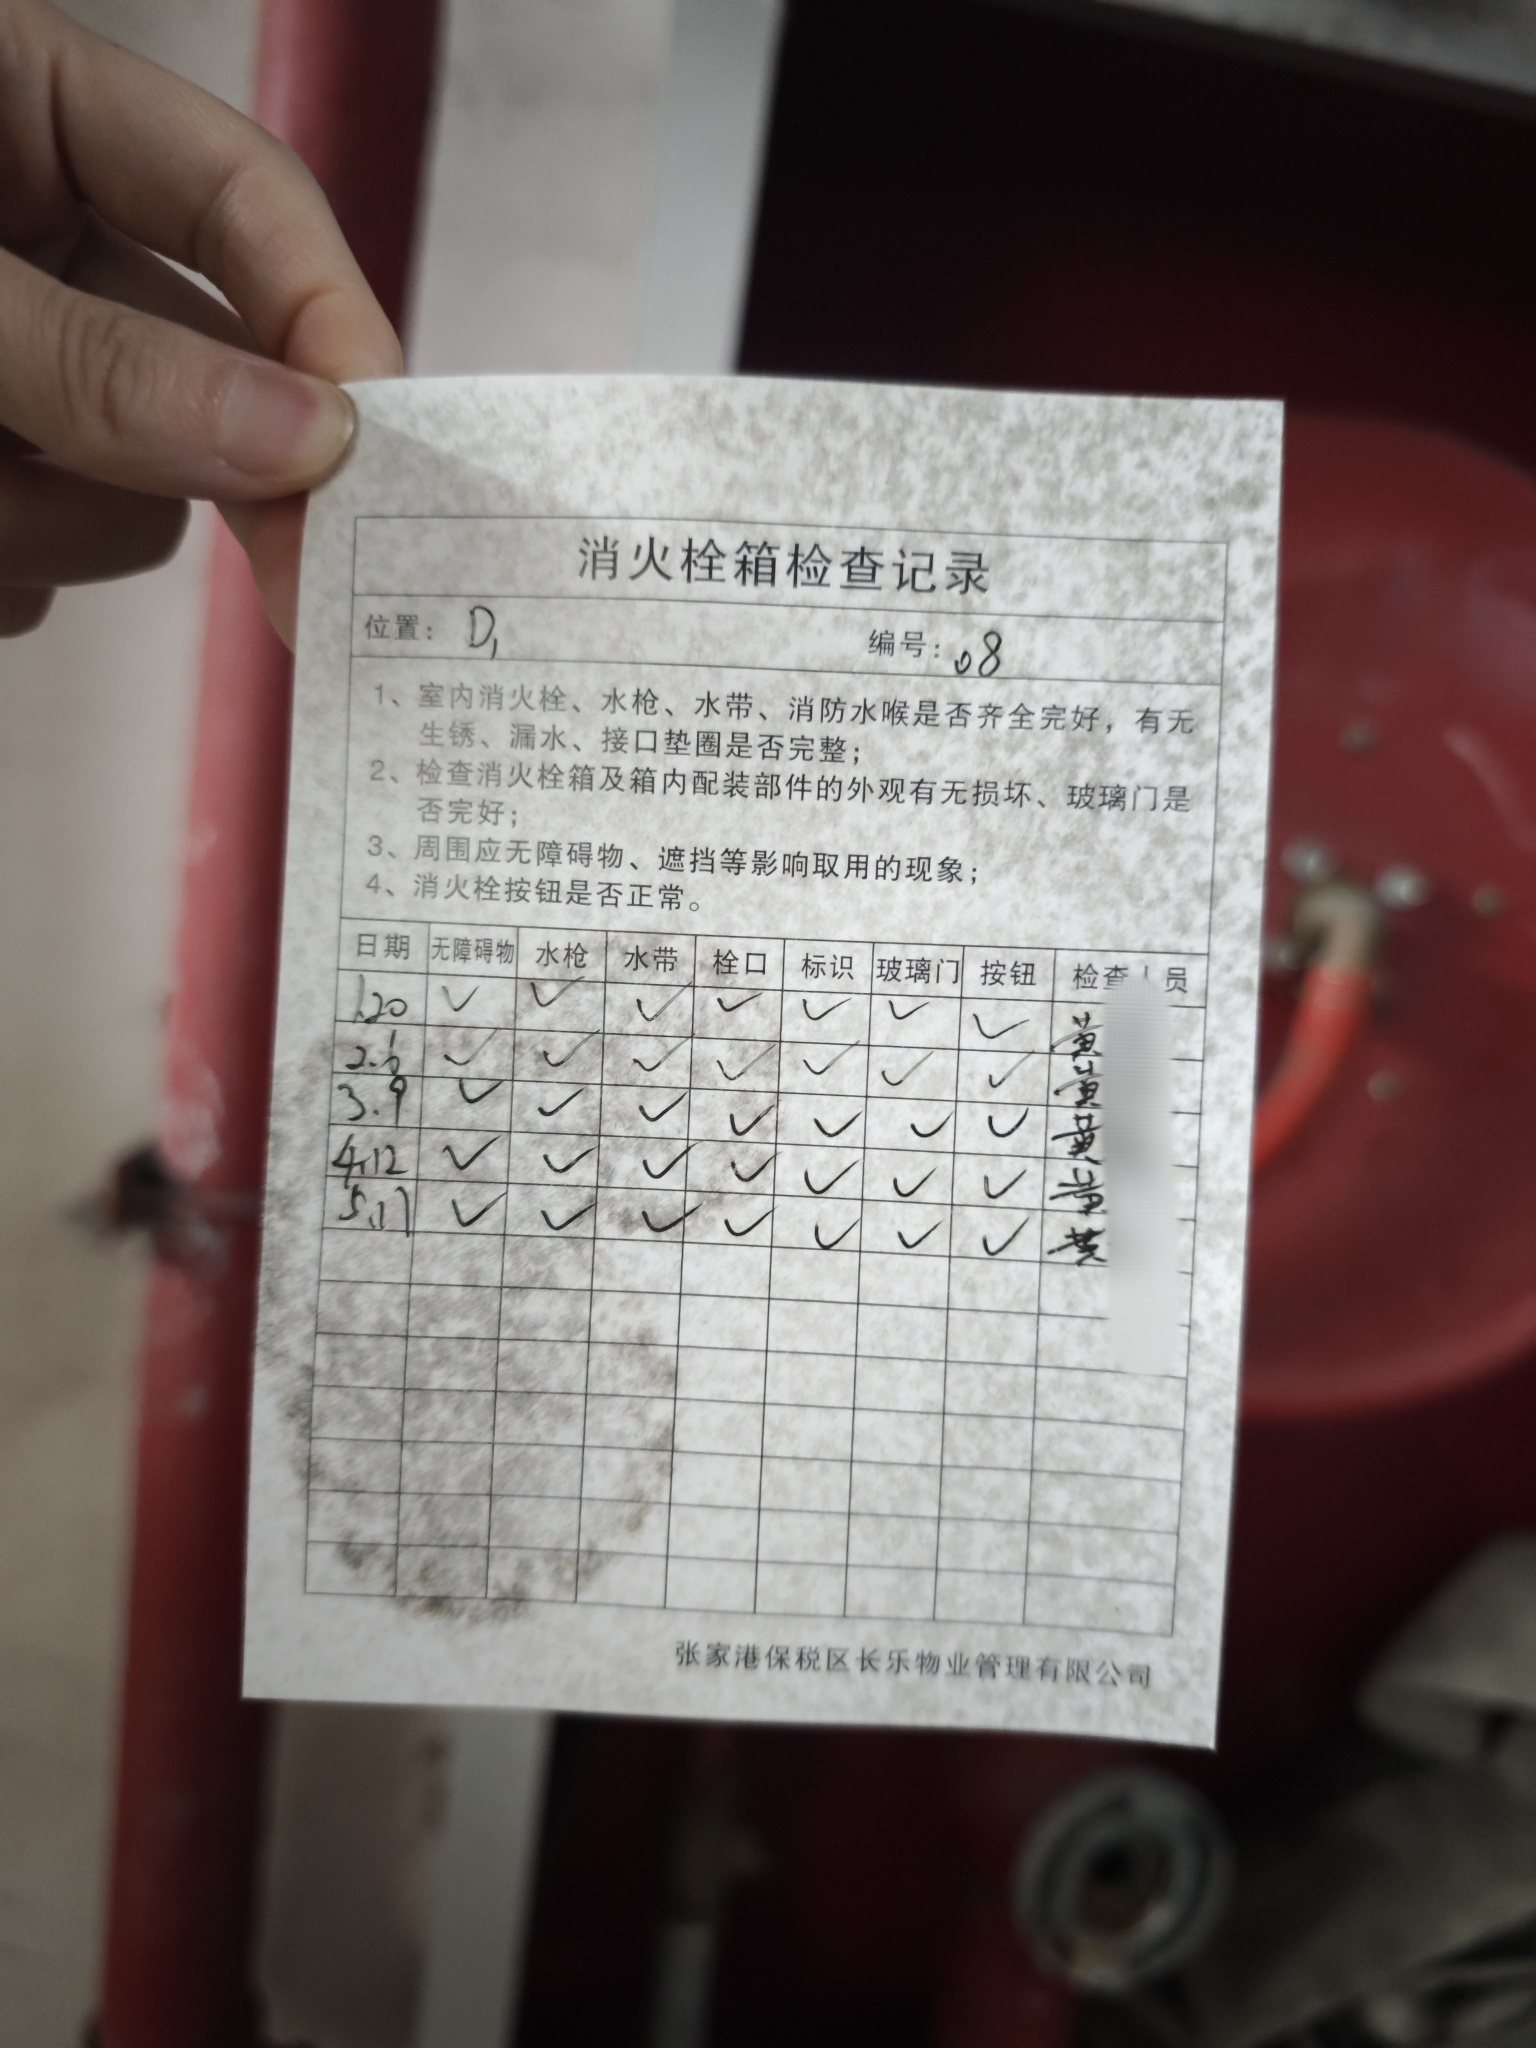 消火栓箱检查记录
位置：D1 编号：08
1、室内消火栓、水枪、水带、消防水喉是否齐全完好，有无
生锈、漏水、接口垫圈是否完整；
2、检查消火栓箱及箱内配装部件的外观有无损坏、玻璃门是
否完好；
3、周围应无障碍物、遮挡等影响取用的现象；
4、消火栓按钮是否正常。
日期 无障碍物 水枪 水带 栓口 标识 玻璃门 按钮 检查人员
1.20 ✓ ✓ ✓ ✓ ✓ ✓ ✓ 黄
2.6 ✓ ✓ ✓ ✓ ✓ ✓ ✓ 黄
3.9 ✓ ✓ ✓ ✓ ✓ ✓ ✓ 黄
4.12 ✓ ✓ ✓ ✓ ✓ ✓ ✓ 黄
5.17 ✓ ✓ ✓ ✓ ✓ ✓ ✓ 黄
张家港保税区长乐物业管理有限公司